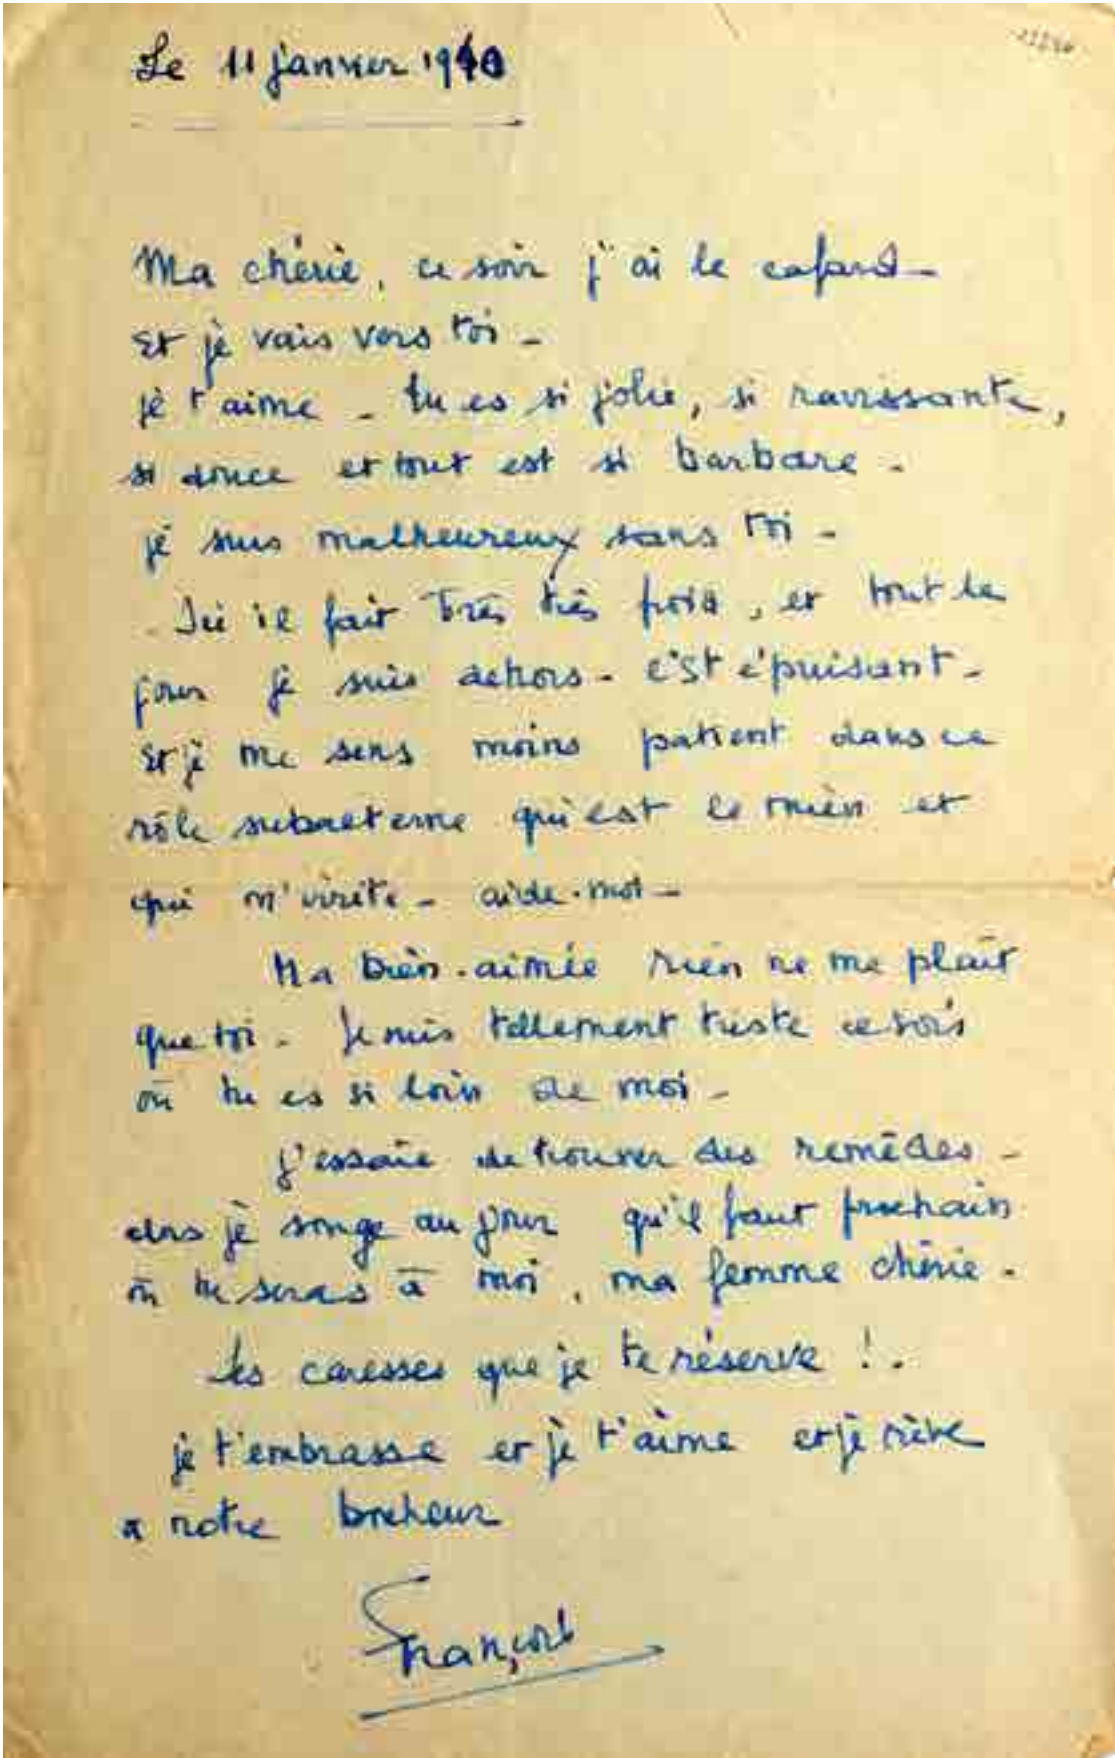 Le 11 janvier 1940
Ma chérie, ce soir j'ai le cafard -
Et je vais vers toi -
je t'aime - tu es si jolie, si ravissante,
si douce et tout est si barbare -
je suis malheureux sans toi -
- Ici il fait très très froid, et tout le
jour je suis dehors - c'est épuisant -
Et je me sens moins patient dans ce
rôle subalterne qui est le mien et
qui m'irrite - aide-moi -
Ma bien-aimée rien ne me plaît
que toi - Je suis tellement triste ce soir
où tu es si loin de moi -
J'essaie de trouver des remèdes -
alors je songe au jour qu'il faut prochain
où tu seras à moi, ma femme chérie -
les caresses que je te réserve ! -
je t'embrasse et je t'aime et je rêve
à notre bonheur
François